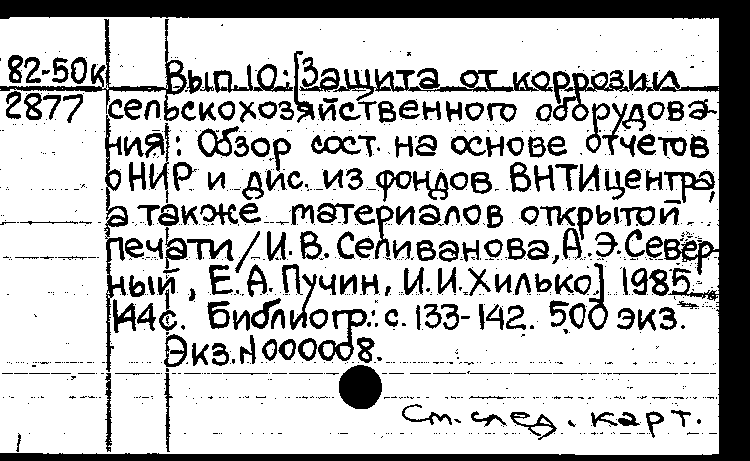 82-50к Вып.10:[Защита от коррозии
2877 сельскохозяйственного оборудова-
ния: Обзор сост. на основе отчетов
о НИР и дис. из фондов ВНТИцентра,
а также материалов открытой
печати/И.В.Селиванова,А.Э.Север-
ный, Е.А.Пучин, И.И.Хилько] 1985
144с. Библиогр.: с. 133-142. 500 экз.
Экз.N000008.
См. след. карт.